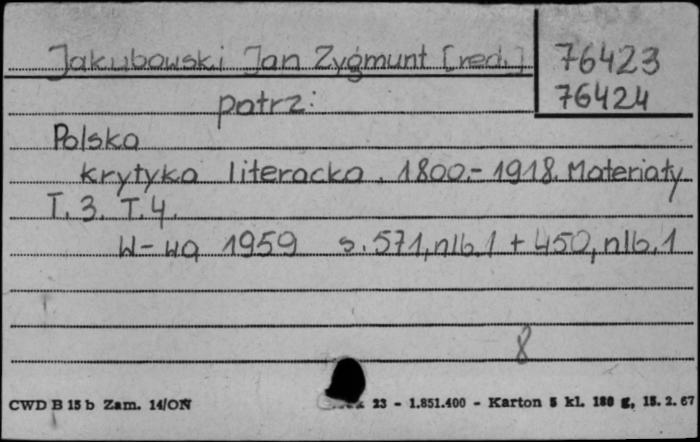 Jakubowski Jan Zygmunt [red.]
76423
76424
patrz:
Polska
krytyka literacka. 1800.- 1918. Materiały
T. 3. T. 4.
W-wa 1959 s. 571, nlb. 1 + 450, nlb. 1
8
CWD B 15 b Zam. 14/ON 23 - 1.851.400 - Karton 5 kl. 180 g, 15. 2. 67